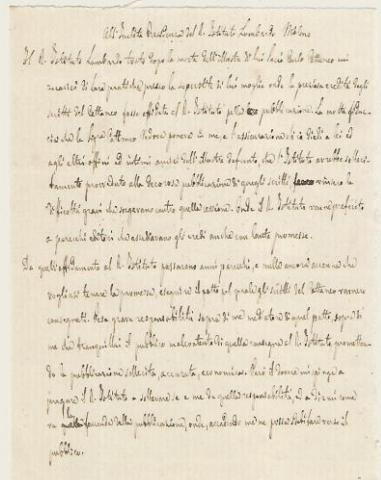 All'Inclita Presidenza del R. Istituto Lombardo Milano
Il R. Istituto Lombardo tosto dopo la morte dell'illustre di lui socio Carlo Cattaneo mi
incaricò di far pratiche presso la superstite di lui moglie onde la preziosa eredità degli
scritti del Cattaneo fosse affidata al R. Istituto per la pubblicazione. La molta fiducia
che la Signora Cattaneo Vedova poneva in me, e l'assicurazione ch'io diedi a lei ed
agli altri affini ed intimi amici dell'illustre defunto, che l'Istituto avrebbe solleci-
tamente provveduto alla decorosa pubblicazione di quegli scritti, vinsero le
difficoltà gravi che sorgevano contro quella cessione. Onde il R. Istituto venne preferito
a parecchi editori che assediavano gli eredi anche con laute promesse.
Da quell'affidamento al R. Istituto passarono anni parecchi, e nulla ancora accenna che
vogliasi tenere la promessa, eseguire il patto col quale gli scritti del Cattaneo vennero
consegnati. Pesa grave responsabilità sopra di me mediatore di quel patto, sopra di
me che tranquillai il pubblico malcontento di quella consegna al R. Istituto, promettendo
la pubblicazione sollecita, accurata, economica. Però il dovere mi spinge a
pregare il R. Istituto a sollevare sè e me da quella responsabilità, ed a dirmi come
va la faccenda della pubblicazione, onde, accadendo me ne possa scusare verso il
pubblico.